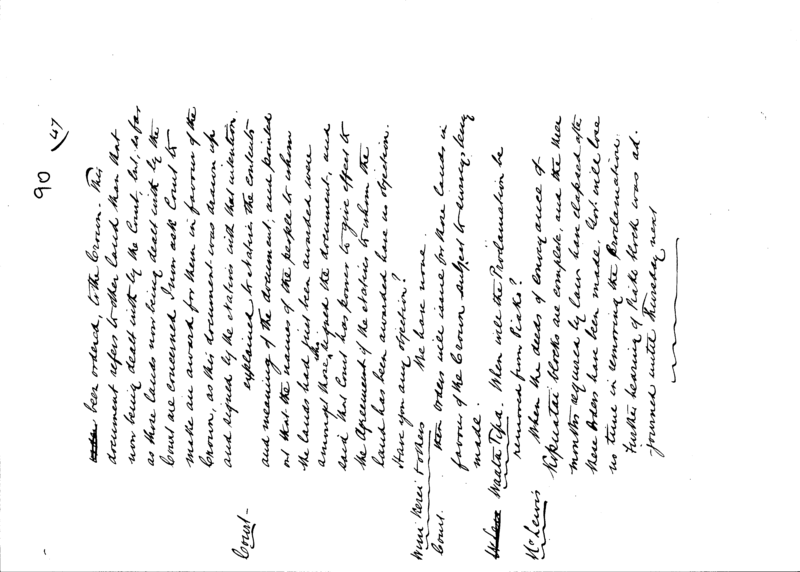 90
47
been ordered, to the Crown. This
document refers to other land than that
now being dealt with by the Court, but, as far
as those lands now being dealt with by the
Court are concerned I now ask Court to
make an award for them in favour of the
Crown, as this document was drawn up
and signed by the natives with that intention.
Court - explained to natives the contents
and meaning of the document, and pointed
out that the names of the people to whom
the lands had just been awarded were
amongst those who signed the document, and
said that Court has power to give effect to
the agreement of the natives to whom the
land has been awarded have no objection.
Have you any objection?
Wini Kerei & others We have none.
Court. Then orders will issue for those lands in
favour of the Crown subject to surveys being
made.
Waata Tipa. When will the Proclamation be
removed from Piako?
Mr Lewis When the deeds of conveyance of
blocks are complete, and the three
months required by law have elapsed after
these orders have been made. Govt will lose
no time in removing the Proclamation.
Further hearing of Piako block was ad-
journed until Thursday next